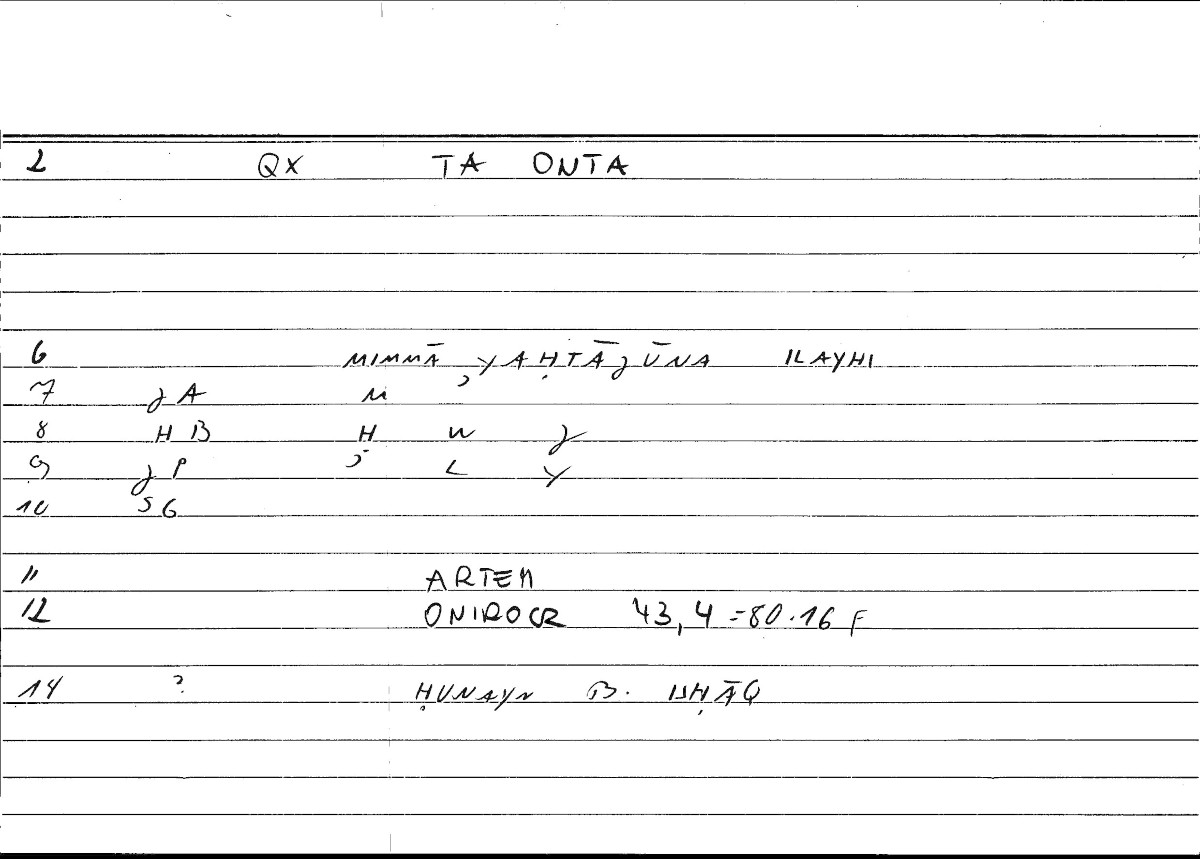 2 QX TA ONTA
6 MIMMĀ YAḤTĀJŪNA ILAYHI
7 JA M
8 HB Ḥ W J
9 JP ʾ L Y
10 SG
11 ARTEM
12 ONIROCR 43,4=80.16 F
14 ? ḤUNAYN B. ISḤĀQ